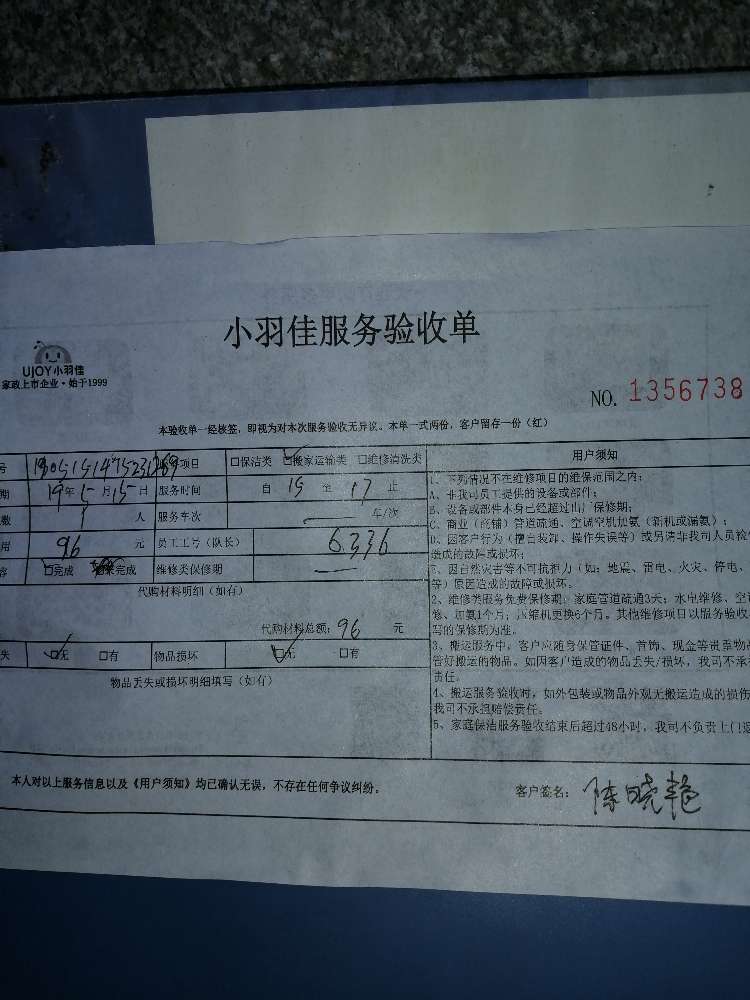 小羽佳服务验收单
UJOY小羽佳
家政上市企业·始于1999
NO. 1356738
本验收单一经核签，即视为对本次服务验收无异议。本单一式两份，客户留存一份（红）
号 项目 口保洁类 口搬家运输类 口维修清洗类
期 19年5月15日 服务时间 自 15 至 17 止
数 1 人 服务车次 车/次
用 96 元 员工工号（队长） 6336
容 口完成 完成 维修类保修期
代购材料明细（如有）
代购材料总额：96 元
失 口无 口有 物品损坏 口无 口有
物品丢失或损坏明细填写（如有）
用户须知
1、下列情况不在维修项目的维保范围之内：
A、非我司员工提供的设备或部件；
B、设备或部件本身已经超过出厂保修期；
C、商业（商铺）管道疏通、空调空机加氨（新机或漏氨）；
D、因客户行为（擅自装卸、操作失误等）或另请非我司人员检
造成的故障或损坏；
E、因自然灾害等不可抗拒力（如：地震、雷电、火灾、停电、
等）原因造成的故障或损坏。
2、维修类服务免费保修期：家庭管道疏通3天；水电维修、空
修、加氨1个月；压缩机更换6个月。其他维修项目以服务验收
写的保修期为准。
3、搬运服务中，客户应随身保管证件、首饰、现金等贵重物品
管好搬运的物品。如因客户造成的物品丢失/损坏，我司不承
责任。
4、搬运服务验收时，如外包装或物品外观无搬运造成的损伤
我司不承担赔偿责任。
5、家庭保洁服务验收结束后超过48小时，我司不负责上门返
本人对以上服务信息以及《用户须知》均已确认无误，不存在任何争议纠纷。
客户签名：陈晓艳